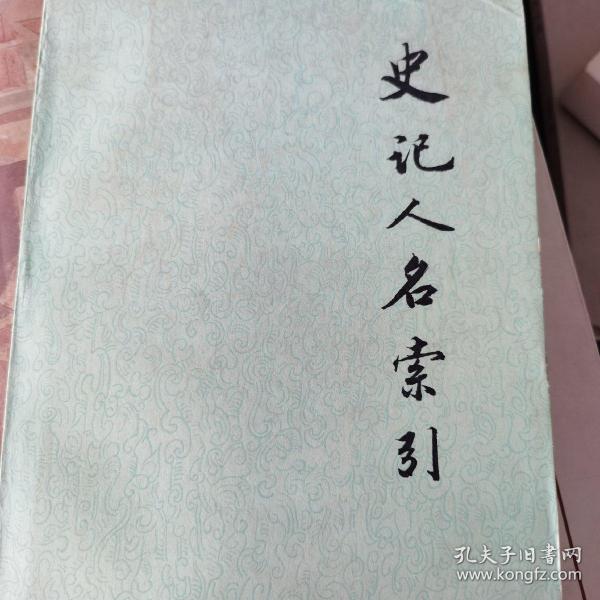 史记人名索引
孔夫子旧書网
www.kongfz.com